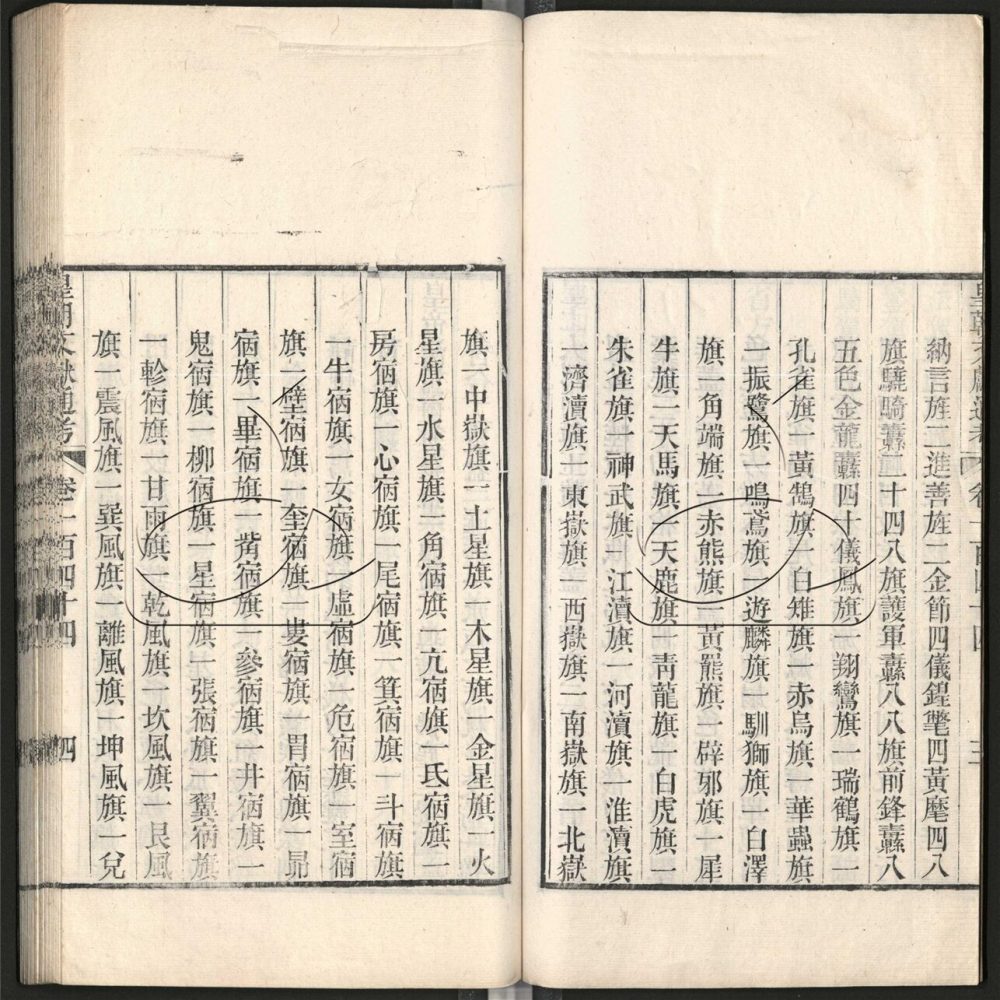 納言旌二進善旌二金節四儀鍠氅四黃麾四八
旗驍騎纛二十四八旗護軍纛八八旗前鋒纛八
五色金龍纛四十儀鳳旗一翔鸞旗一瑞鶴旗一
孔雀旗一黃鵠旗一白雉旗一赤烏旗一華蟲旗
一振鷺旗一鳴鳶旗一遊麟旗一馴獅旗一白澤
旗一角端旗一赤熊旗一黃羆旗一辟邪旗一犀
牛旗一天馬旗一天鹿旗一青龍旗一白虎旗一
朱雀旗一神武旗一江瀆旗一河瀆旗一淮瀆旗
一濟瀆旗一東嶽旗一西嶽旗一南嶽旗一北嶽
旗一中嶽旗一土星旗一木星旗一金星旗一火
星旗一水星旗一角宿旗一亢宿旗一氐宿旗一
房宿旗一心宿旗一尾宿旗一箕宿旗一斗宿旗
一牛宿旗一女宿旗一虛宿旗一危宿旗一室宿
旗一壁宿旗一奎宿旗一婁宿旗一胃宿旗一昴
宿旗一畢宿旗一觜宿旗一參宿旗一井宿旗一
鬼宿旗一柳宿旗一星宿旗一張宿旗一翼宿旗
一軫宿旗一甘雨旗一乾風旗一坎風旗一艮風
旗一震風旗一巽風旗一離風旗一坤風旗一兌
皇朝文獻通考 卷一百四十四 四